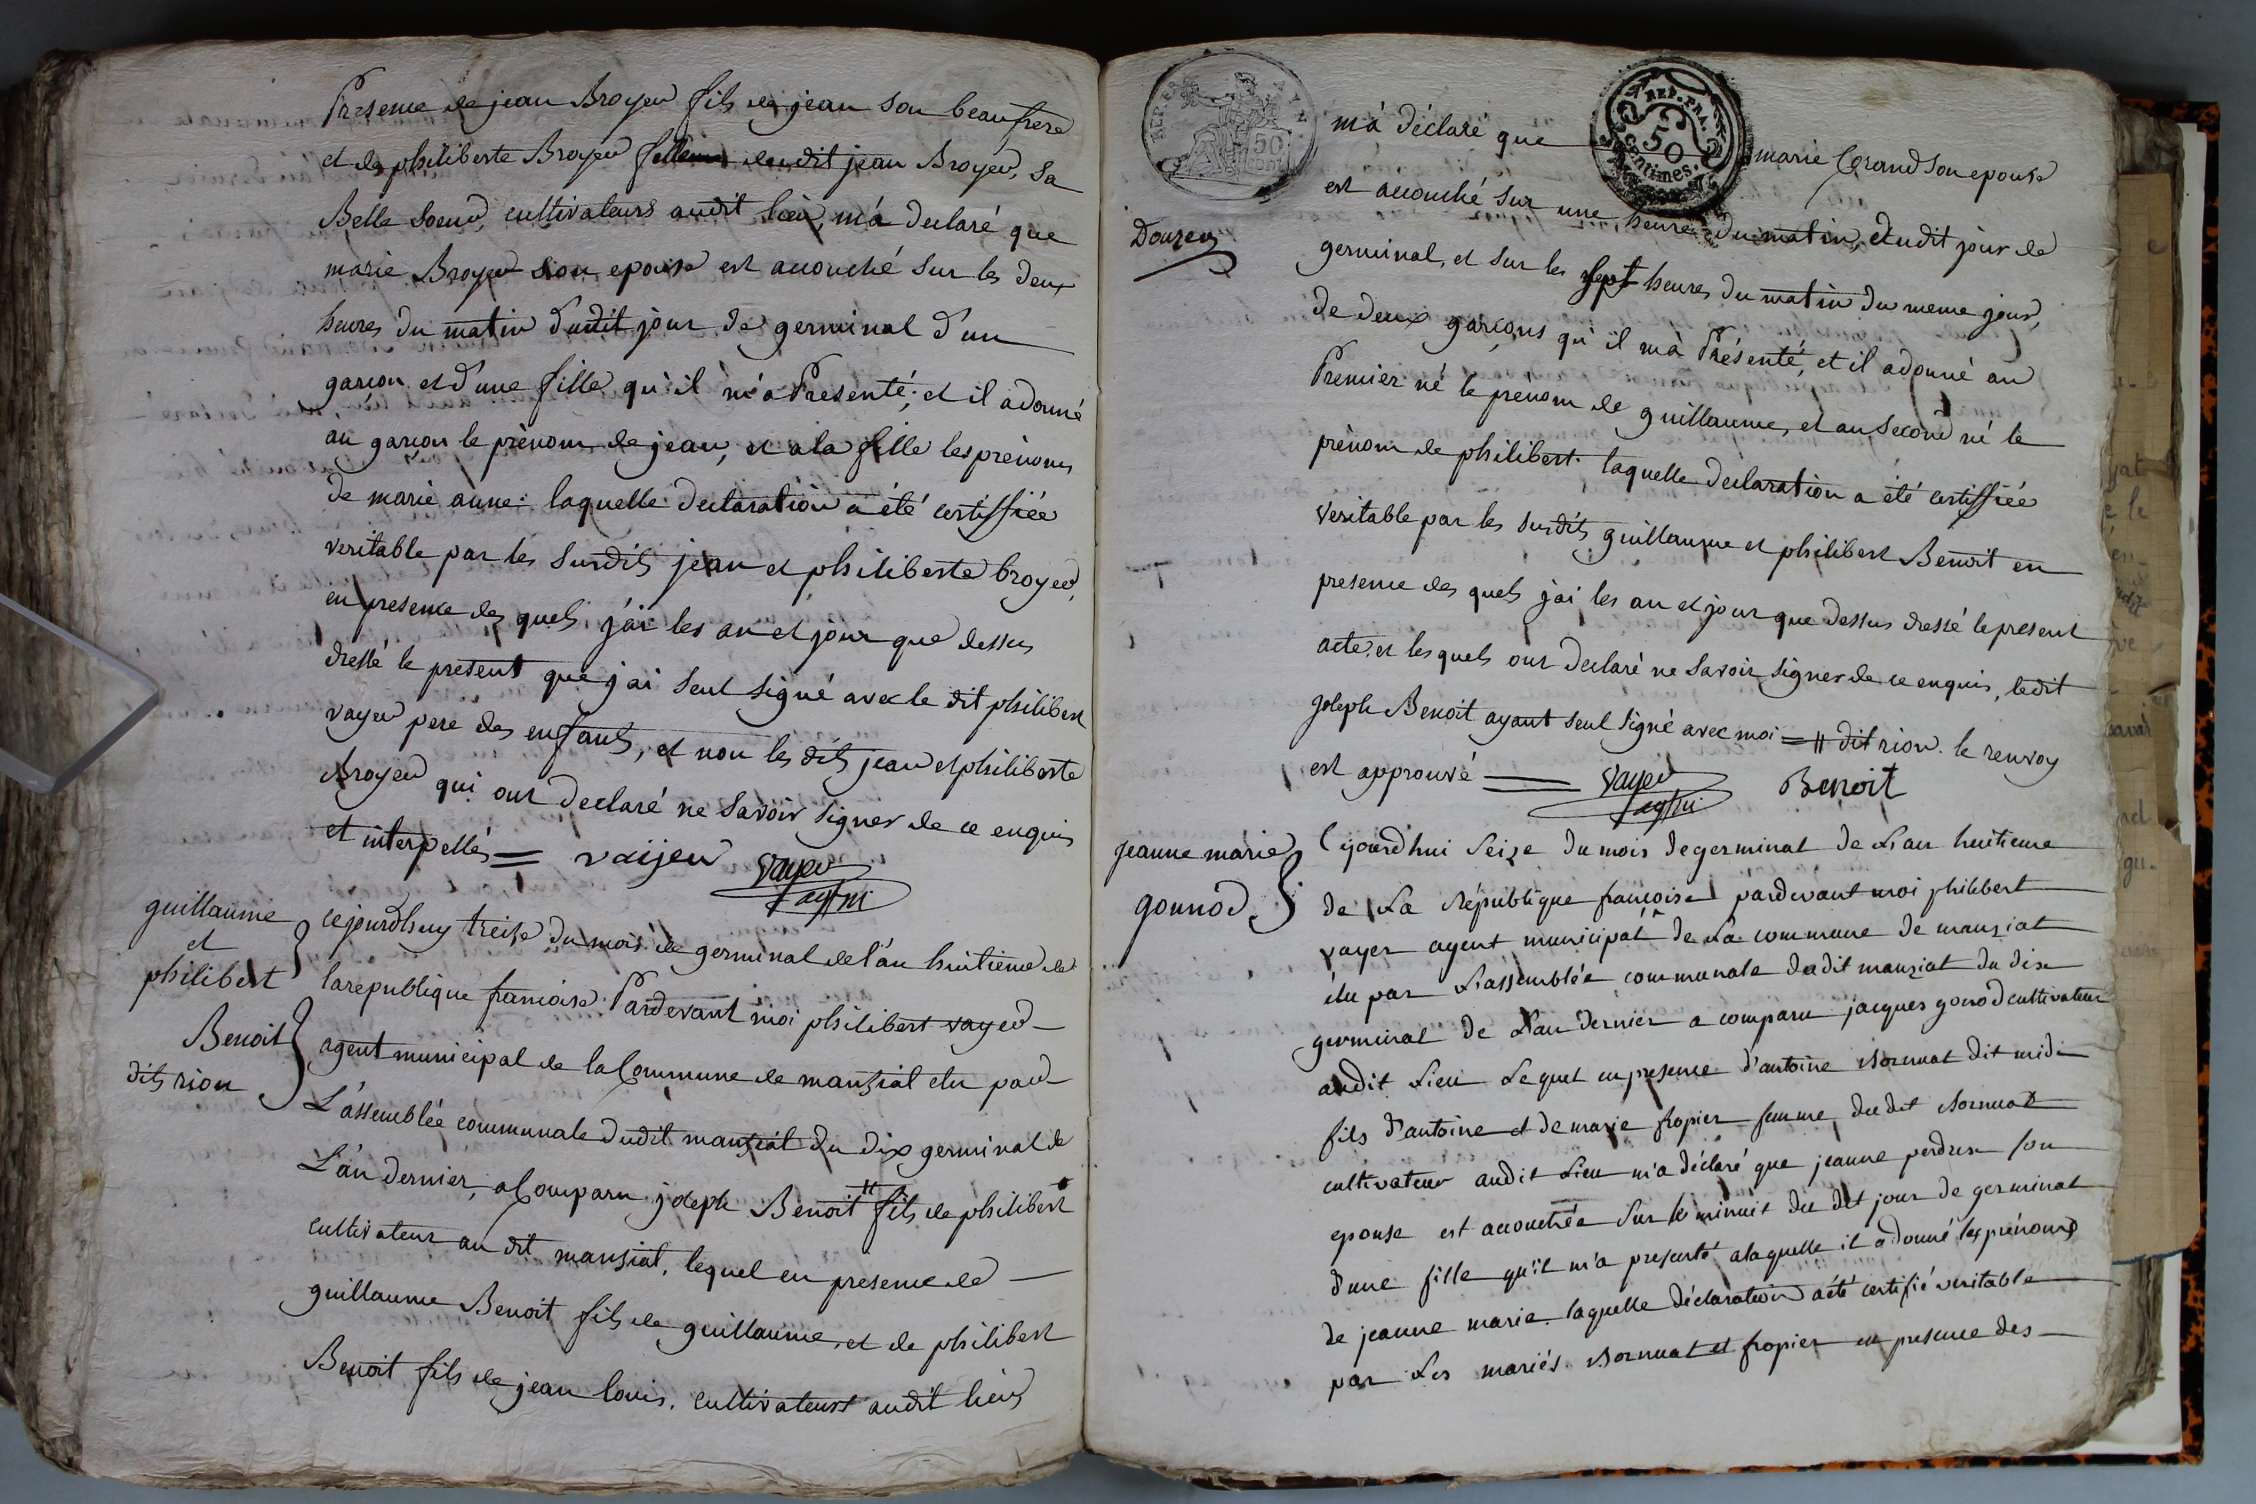 Presence de jean Broyer fils de jean son beaufrere
et de philiberte Broyer femme du dit jean Broyer, sa
Belle Soeur, cultivateurs audit lieu, m'a declaré que
marie Broyer son epouse est accouché sur les deux
heures du matin dudit jour de germinal d'un
garçon et d'une fille qu'il m'a Presenté; et il a donné
au garçon le prènom de jean, et a la fille les prènoms
de marie anne: laquelle declaration a été certiffiée
veritable par les Susdits jean et philiberte broyer,
en presence des quels j'ai les an et jour que dessus
dressé le present que j'ai seul signé avec le dit philibert
vayer pere des enfants, et non les dits jean et philiberte
Broyer qui ont declaré ne savoir signer de ce enquis
et interpellés = vaijeu vayer
agt mi
guillaume
et
philibert
Benoit
dits rion
cejourdhuy treize du mois de germinal de l'an huitieme de
la republique francoise. Pardevant moi philibert vayer
agent municipal de la Commune de manziat elu par
L'assemblée communale dudit manziat du dix germinal de
L'an dernier, a Comparu joseph Benoit " fils de philibert
cultivateur au dit manziat, lequel en presence de
guillaume Benoit fils de guillaume, et de philibert
Benoit fils de jean louis, cultivateurs audit lieu
REP. FRA.
50
centimes.
50
cent
Douzen
m'a déclaré que marie Grand son epouse
est accouché sur une heure du matin, dudit jour de
germinal, et sur les sept heures du matin du meme jour,
de deux garçons qu'il m'a Présenté, et il a donné au
Premier né le prènom de guillaume, et au second né le
prènom de philibert. laquelle declaration a été certiffiée
veritable par les susdits guillaume et philibert Benoit en
presence des quels j'ai les an et jour que dessus dressé le present
acte. et les quels ont declaré ne savoir signer de ce enquis, ledit
joseph Benoit ayant seul signé avec moi = " dit rion. le renvoy
est approuvé = vayer Benoit
agt mi
jeanne marie
gounod
Cejourdhui seize du mois de germinal de L'an huitieme
de La république françoise pardevant moi philibert
vayer agent municipal de La commune de manziat
élu par L'assemblée communale dudit manziat du dix
germinal de L'an dernier a comparu jacques gonod cultivateur
audit Lieu Lequel en presence d'antoine Bornuat dit midi
fils d'antoine et de marie fropier femme dudit Bornuat
cultivateur audit Lieu m'a déclaré que jeanne perdrix son
epouse est accouchée sur le minuit du dit jour de germinal
d'une fille qu'il m'a presenté a laquelle il a donné les prénoms
de jeanne marie. laquelle déclaration a été certifié veritable
par Les mariés Bornuat et fropier en presence des